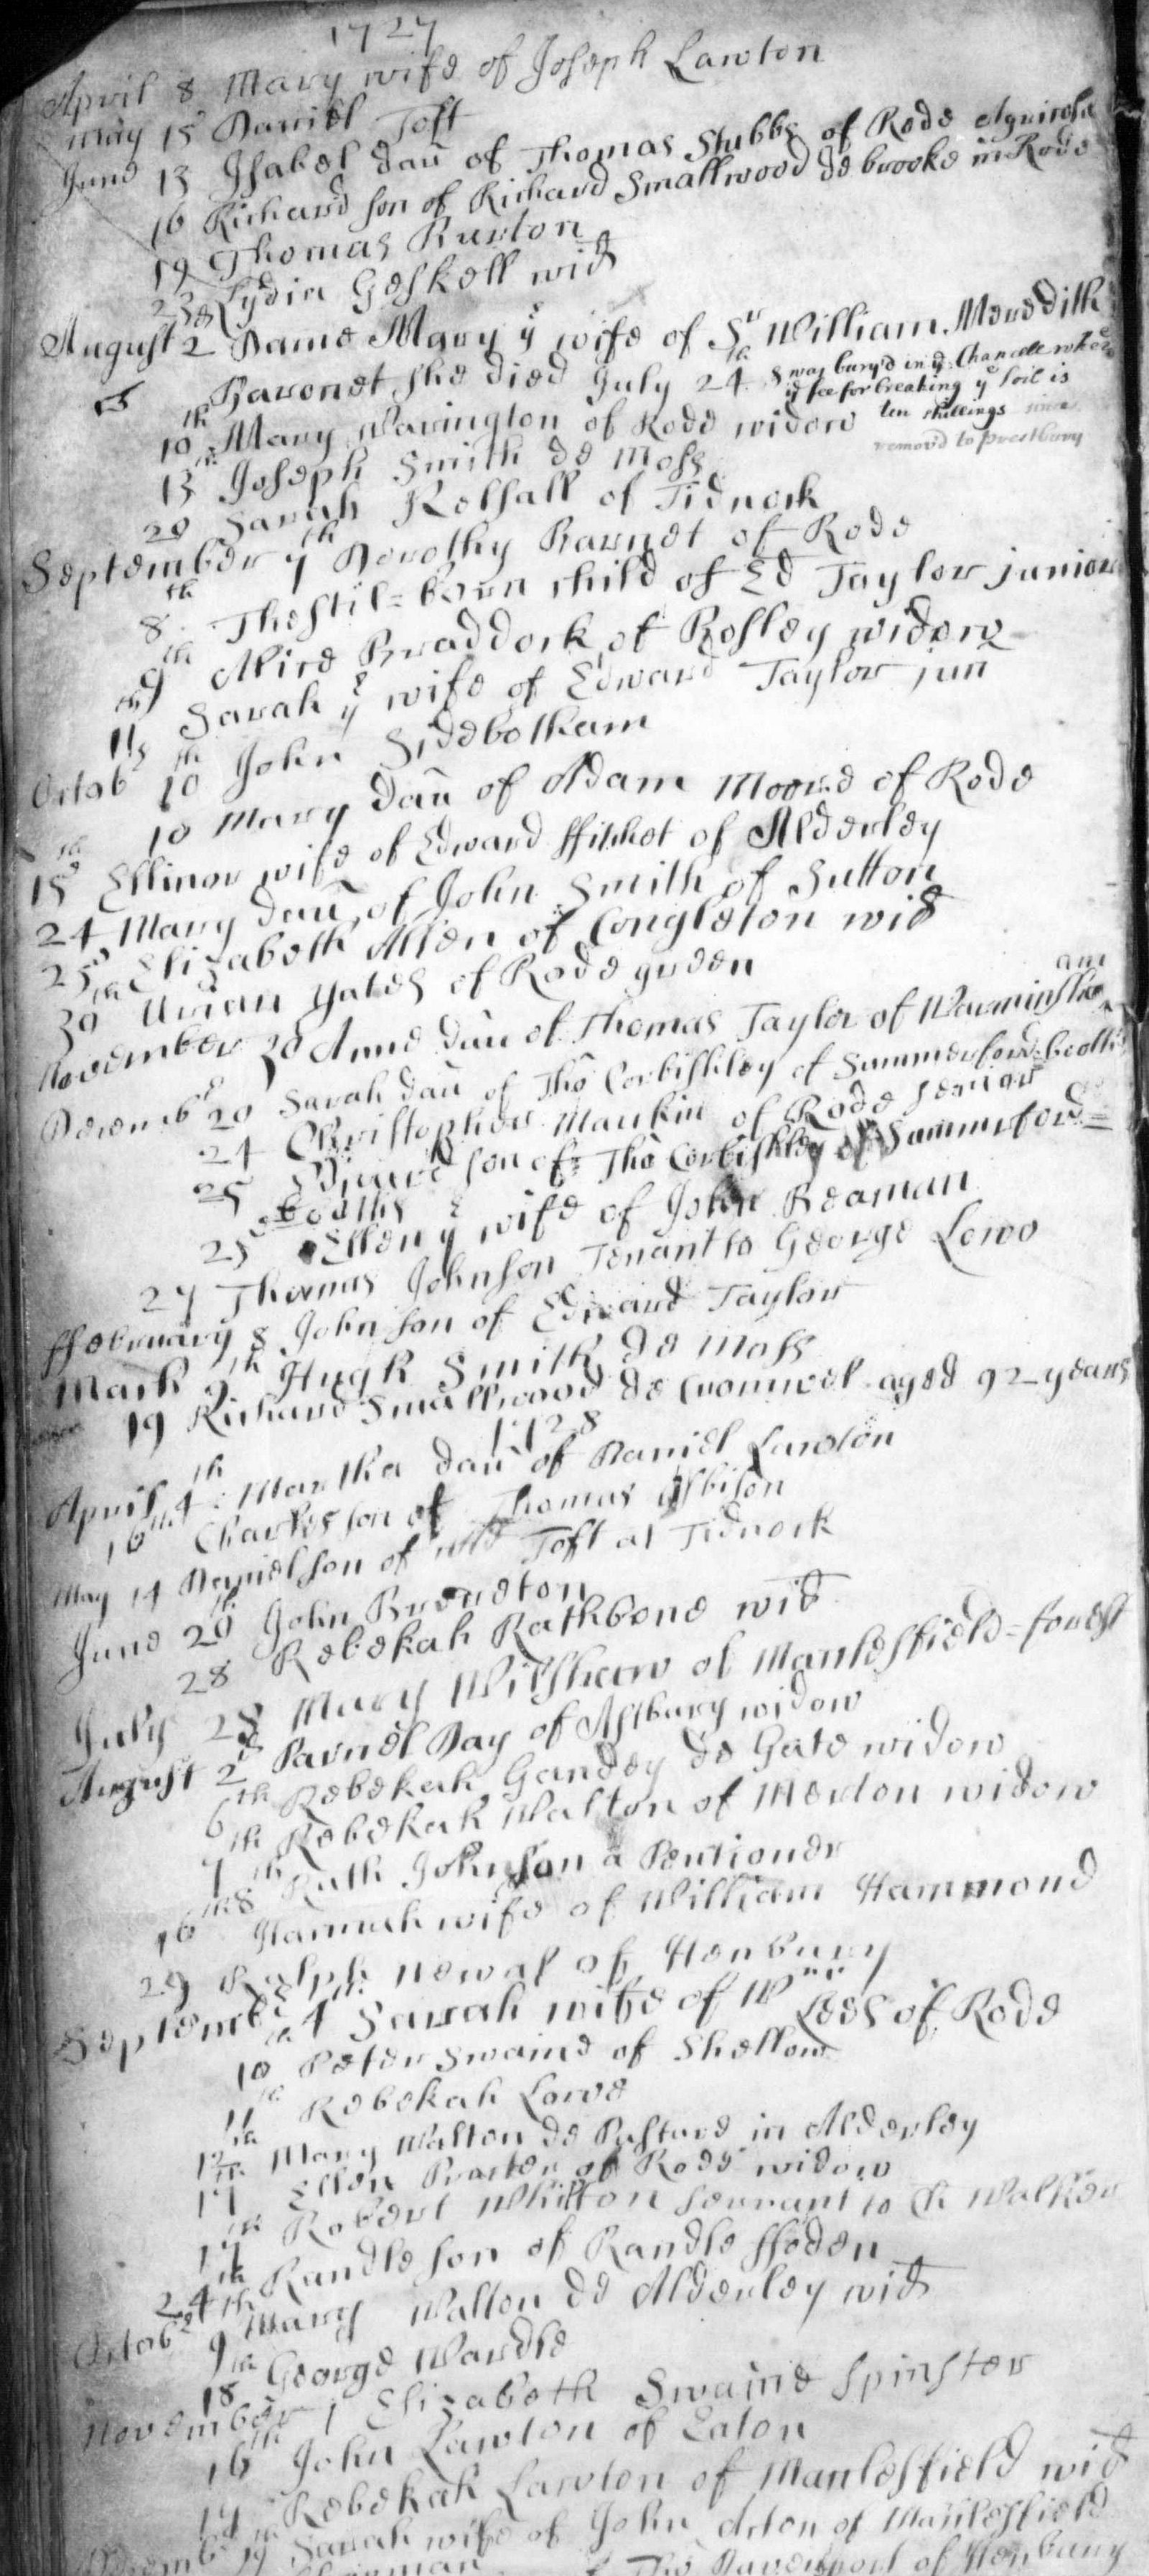 1727
April 8 Mary wife of Joseph Lawton
May 15 Daniel Toft
June 13 Isabel dau of Thomas Stubbs of Rode
16 Richard son of Richard Smallwood de brooke in Rode
19 Thomas Burton
23 Lydia Geskell wid
August 2d Dame Mary ye wife of Sr William Meredith
Baronet she died July 24th & was bury'd in ye Chancell where
ye fee for breaking ye soil is
ten shillings since
remov'd to prestbury
10th Mary Warington of Rode widow
13th Joseph Smith de Moss
20 Sarah Kelsall of Tidnock
September 7th Dorothy Barnet of Rode
8th The stil=born child of Ed Taylor junior
9th Alice Braddock of Bosley widow
11th Sarah ye wife of Edward Taylor jun
Octobr 10th John Sidebotham
10 Mary dau of Adam Moore of Rode
15th Ellinor wife of Edward ffitchet of Alderley
24 Mary dau of John Smith of Sutton
25th Elizabeth Allen of Congleton wid
30th Urian Yates of Rode green
November 20 Anne dau of Thomas Taylor of Warminsham
Decembr 20 Sarah dau of Tho Corbishley of Summerford booths
24 Christopher Mankin of Rode Senior
25 Edward son of Tho Corbishley of Summerford=
=booths
25 Ellen ye wife of John Beaman
27 Thomas Johnson Tenant to George Lowe
ffebruary 8 John son of Edward Taylor
March 9th Hugh Smith de Moss
19 Richard Smallwood de Cromwel aged 92 years
1728
April 4th Martha dau of Daniel Lawton
16th Charles son of Thomas
May 14 Daniel son of Wm Toft at Tidnock
June 20th John Brereton
28 Rebekah Rathbone wid
July 28 Mary Wilshaw of Manlesfield=forest
August 2d Parnel Day of Astbury widow
6th Rebekah Gandey de Gate widow
7th Rebekah Walton of Merton widow
8th Ruth Johnson a Pentioner
16th Hannah wife of William Hammond
29 Ralph Newal of Henbury
Septembr 4th Sarah wife of Wm Lees of Rode
10th Peter Swaine of Shellow
11th Rebekah Lowe
12th Mary Walton de Pasture in Alderley
17th Ellen of Rode widow
17th Robert Whitton servant to Ch Walker
24th Randle son of Randle ffoden
Octobr 9th Mary Walton de Alderley wid
18th George Wardle
November 1 Elizabeth Swaine spinster
16th John Lawton of Eaton
17 Rebekah Lawton of Manlesfield wid
Decembr 19th Sarah wife of John Acton of Manlesfield
Tho Davenport of Henbury